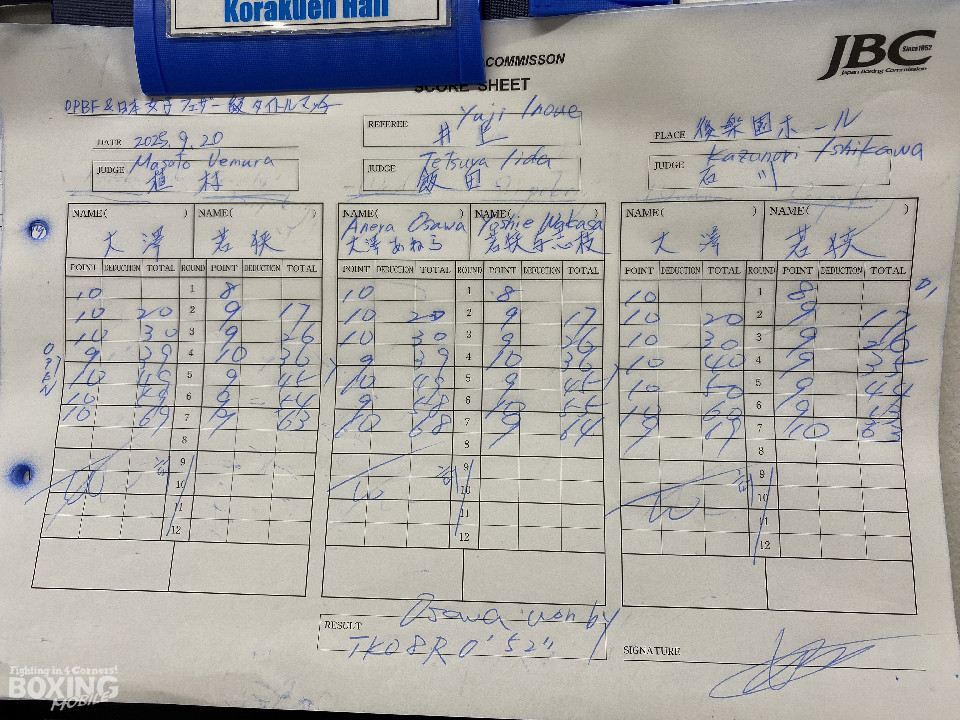 Korakuen Hall
COMMISSON
SCORE SHEET
JBC Since 1952
Japan Boxing Commission
OPBF & 日本女子フェザー級タイトルマッチ
DATE 2025, 9, 20
REFEREE Yuji Inoue
井上
PLACE 後楽園ホール
JUDGE Masato Uemura
植村
JUDGE Tetsuya Iida
飯田
JUDGE Kazunori Ishikawa
石川
NAME( ) NAME( )
大澤 若狭
NAME( ) NAME( )
Anera Osawa Yoshie Wakasa
大澤あねら 若狭与志枝
NAME( ) NAME( )
大澤 若狭
POINT DEDUCTION TOTAL ROUND POINT DEDUCTION TOTAL
10 1 8
10 20 2 9 17
10 30 3 9 26
9 39 4 10 36
10 49 5 9 45
10 59 6 9 54
10 69 7 9 63
8
9
10
11
12
POINT DEDUCTION TOTAL ROUND POINT DEDUCTION TOTAL
10 1 8
10 20 2 9 17
10 30 3 9 26
9 39 4 10 36
10 49 5 9 45
9 58 6 10 55
10 68 7 9 64
8
9
10
11
12
POINT DEDUCTION TOTAL ROUND POINT DEDUCTION TOTAL
10 1 8
10 20 2 9 17
10 30 3 9 26
10 40 4 9 35
10 50 5 9 44
10 60 6 9
9 7 10
8
9
10
11
12
RESULT Osawa won by
TKO 8R 0'52"
SIGNATURE
Fighting in 4 Corners!
BOXING
MOBILE